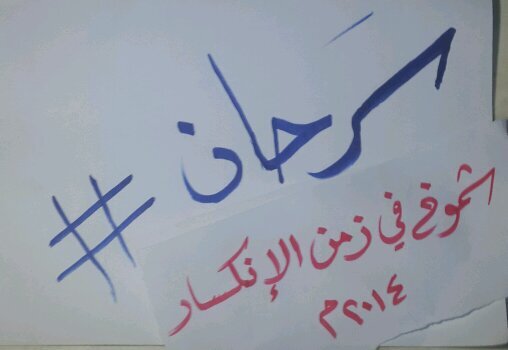 سَرحان #
شموخ في زمن الإنكسار
٢٠١٤م